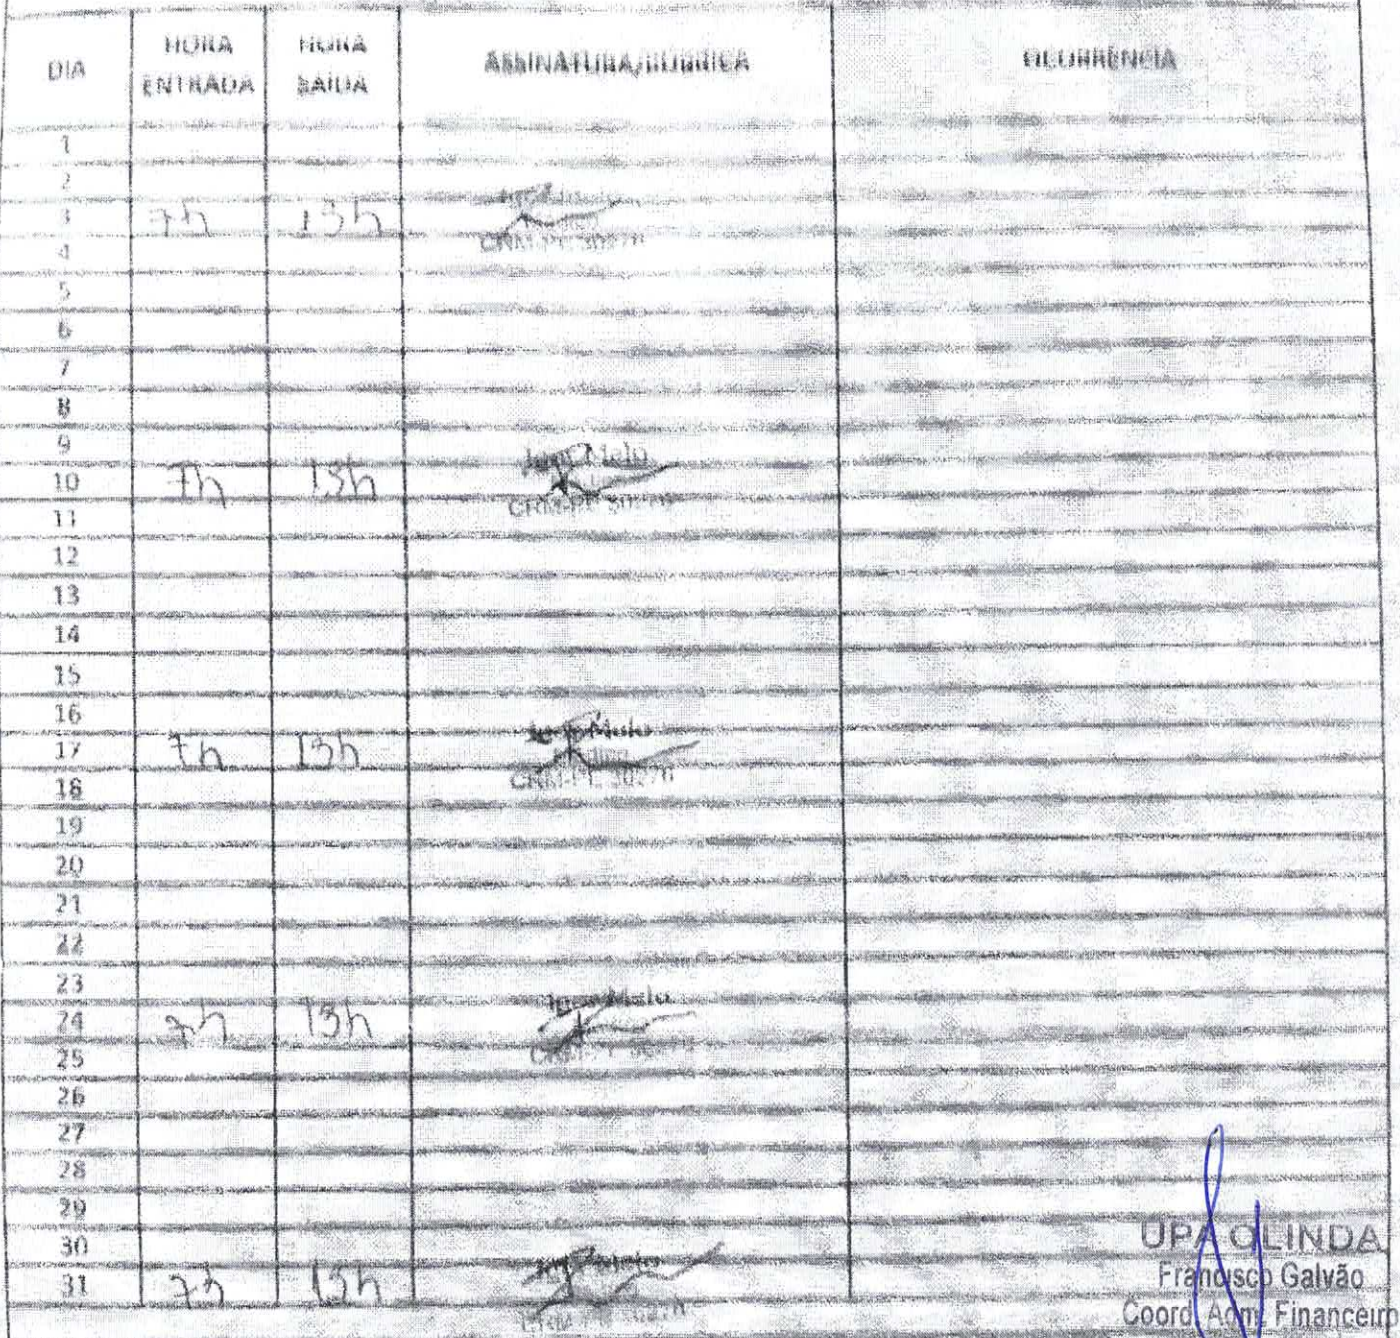 DIA HORA ENTRADA HORA SAÍDA ASSINATURA/RUBRICA OCORRÊNCIA
1
2
3 7h 13h
4
5
6
7
8
9
10 7h 13h Melo
CRM-PE
11
12
13
14
15
16
17 7h 13h Melo
CRM-PE
18
19
20
21
22
23
24 7h 13h Melo
CRM-PE
25
26
27
28
29
30
31 7h 13h Melo
UPA OLINDA
Francisco Galvão
Coord. Adm. Financeiro